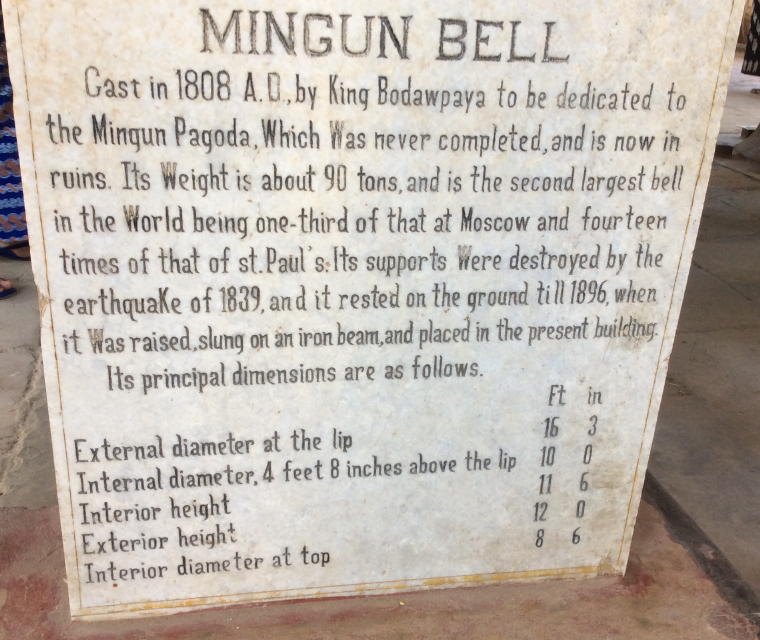 MINGUN BELL
Cast in 1808 A.D., by King Bodawpaya to be dedicated to
the Mingun Pagoda, Which Was never completed, and is now in
ruins. Its Weight is about 90 tons, and is the second largest bell
in the World being one-third of that at Moscow and fourteen
times of that of st. Paul's. Its supports Were destroyed by the
earthquaKe of 1839, and it rested on the ground till 1896, when
it Was raised, slung on an iron beam, and placed in the present building.
Its principal dimensions are as follows.
Ft in
External diameter at the lip 16 3
Internal diameter, 4 feet 8 inches above the lip 10 0
Interior height 11 6
Exterior height 12 0
Interior diameter at top 8 6